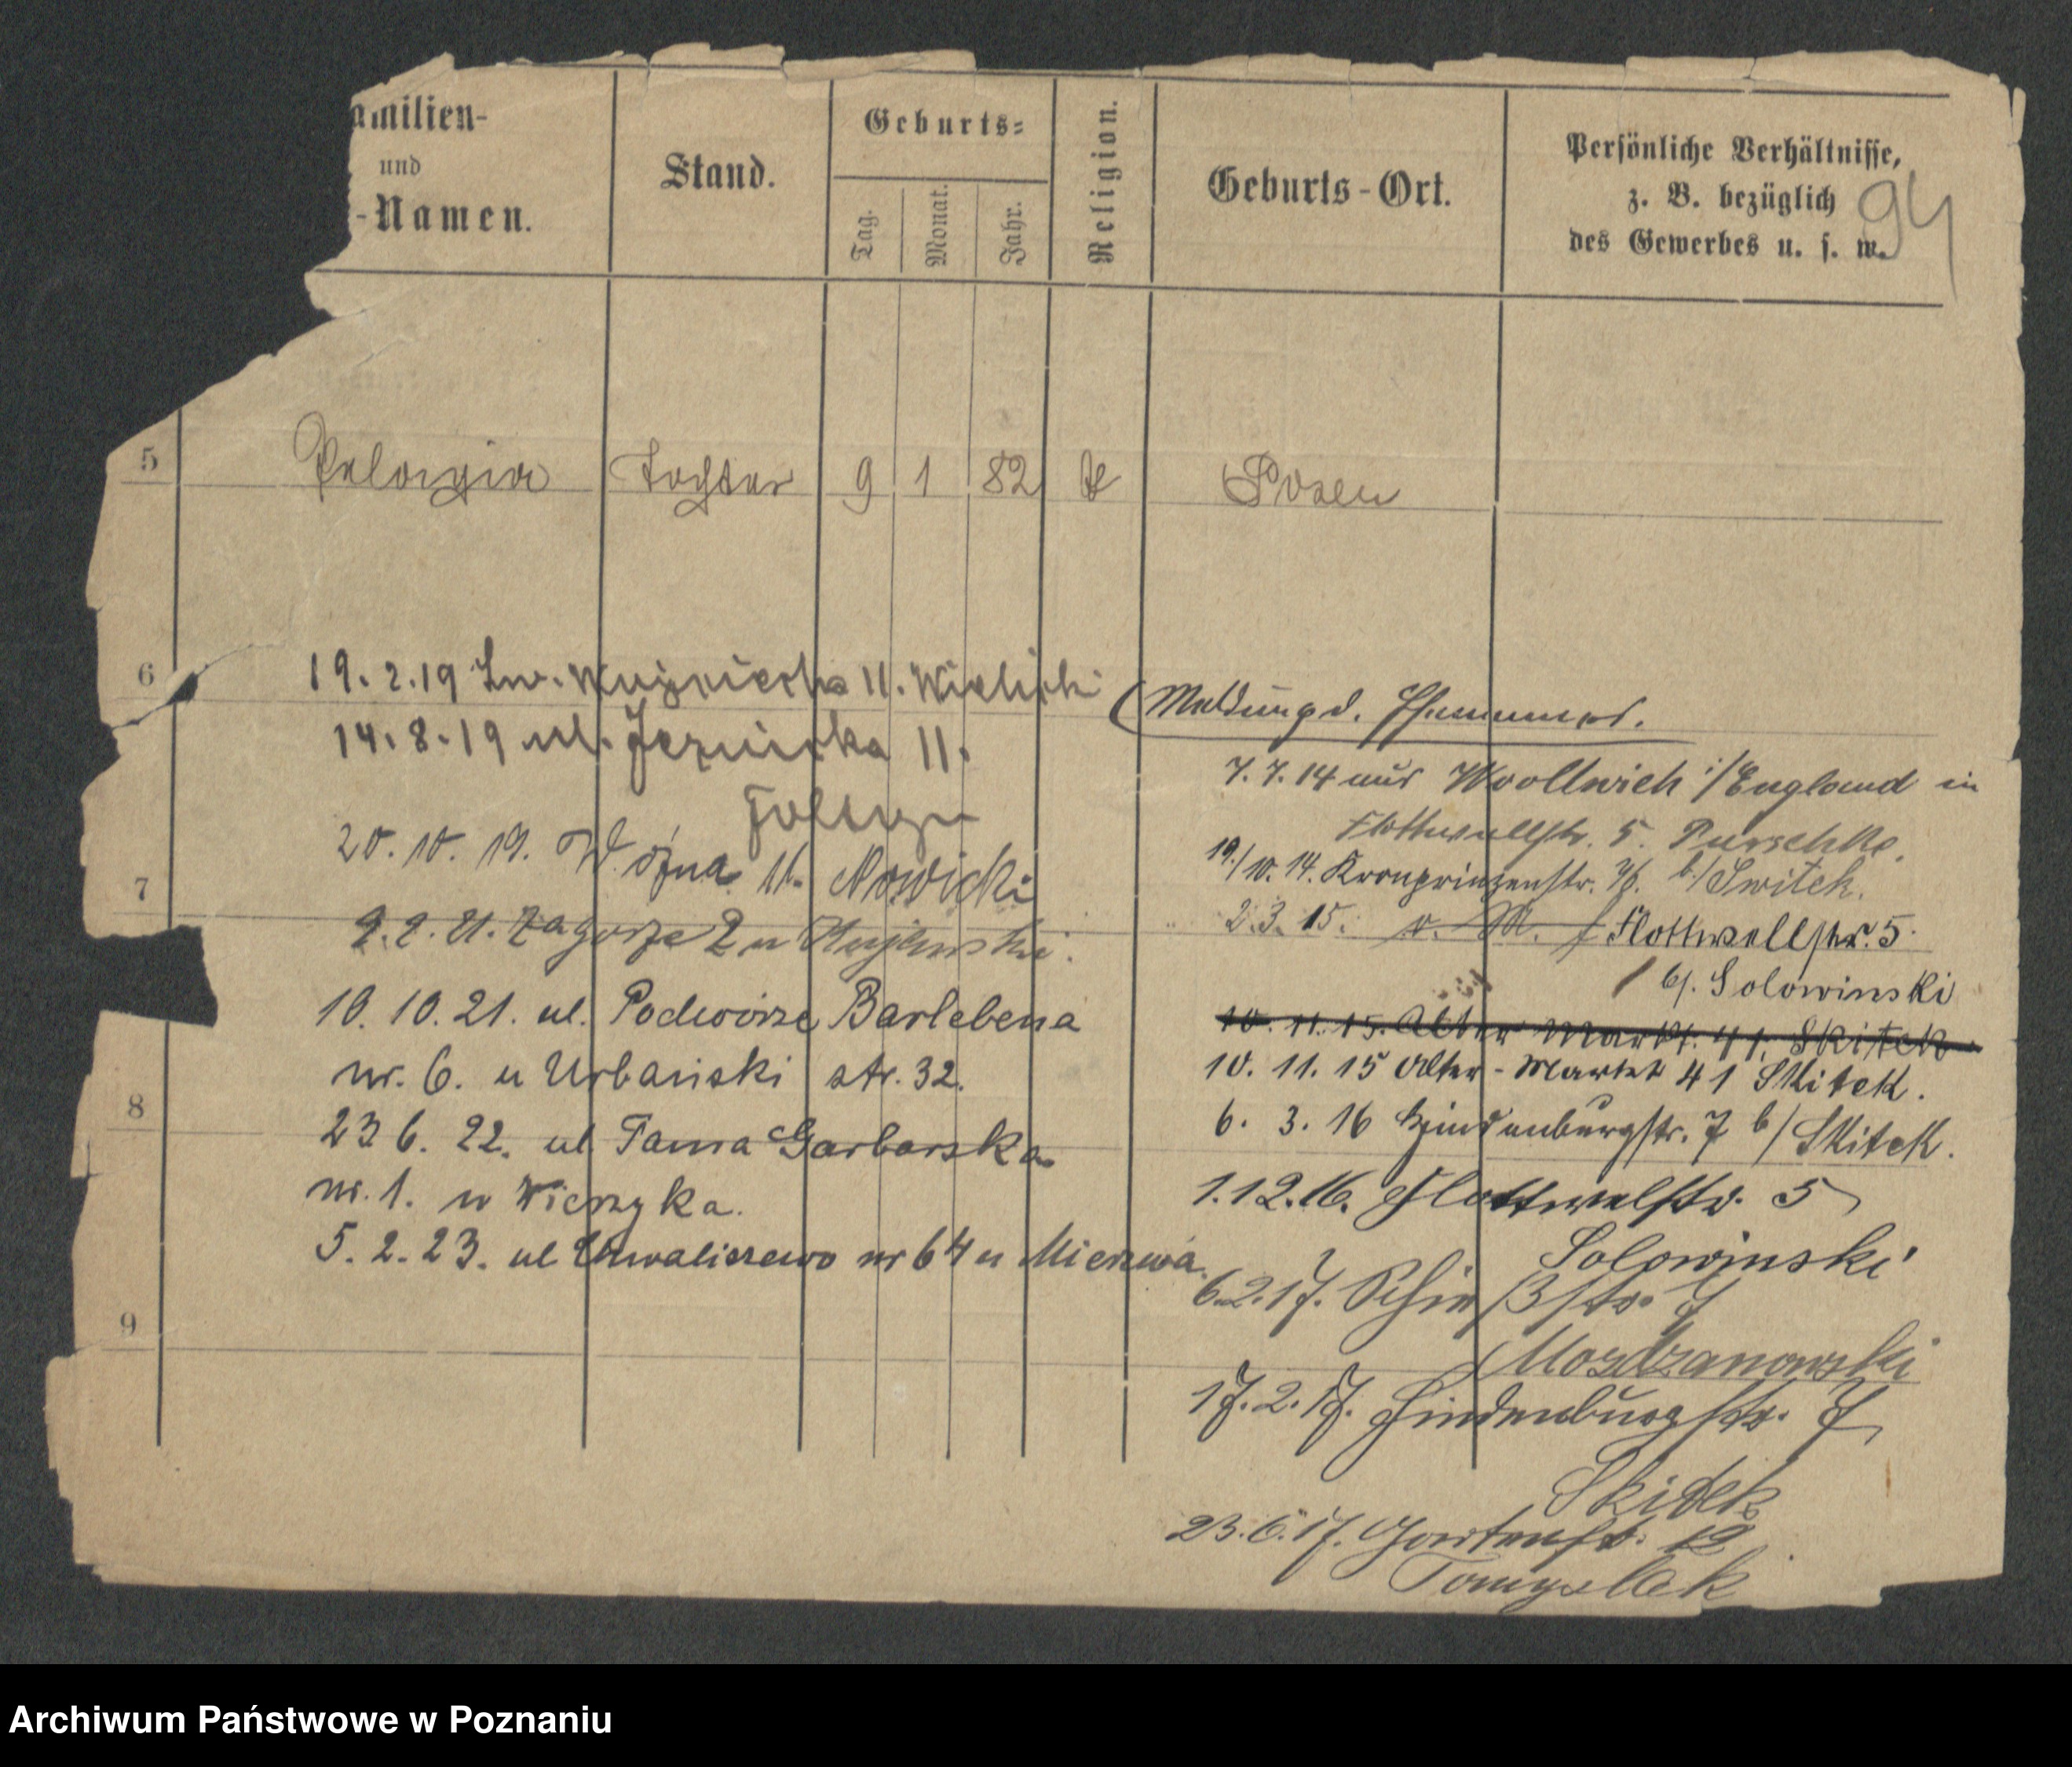 amilien-
und
-Namen.
Stand.
Geburts-
Tag.
Monat.
Jahr.
Religion.
Geburts-Ort.
Persönliche Verhältnisse,
z. B. bezüglich
des Gewerbes u. s. w.
94
5 Pelagia Tochter 9 1 82 Posen
6
19.2.19 11.
14.8.19 ul. Jezuicka 11.
20.10.19. Wożna 11. Nowicki
7
2.2.21. Zagorze 2 u
10.10.21. ul. Podwórze Barlebena
nr. 6. u Urbański str. 32.
8
23 6. 22. ul. Tama Garbarska
nr. 1. u Wieszyka.
5.2.23. ul Chwaliszewo nr 64 u Mierzwa.
9
Meldung d.
7.7.14 aus Woollwich i/England in
Flottwellstr. 5. Purschke.
19./10.14. Kronprinzenstr. b./Switek.
2.3.15. Flottwellstr. 5.
b/. Solowinski
10.11.15. Alter Markt. 41. Skitek
10.11.15 Alter-Markt 41 Skitek.
6. 3. 16 Hindenburgstr. 7 b/Skitek.
1.12.16. Flottwelstr. 5
Solowinski
6.2.17. 7
Mosdzanowski
17.2.17. Hindenburgstr. 7
Skitek
23.6.17. Gartenstr. 12